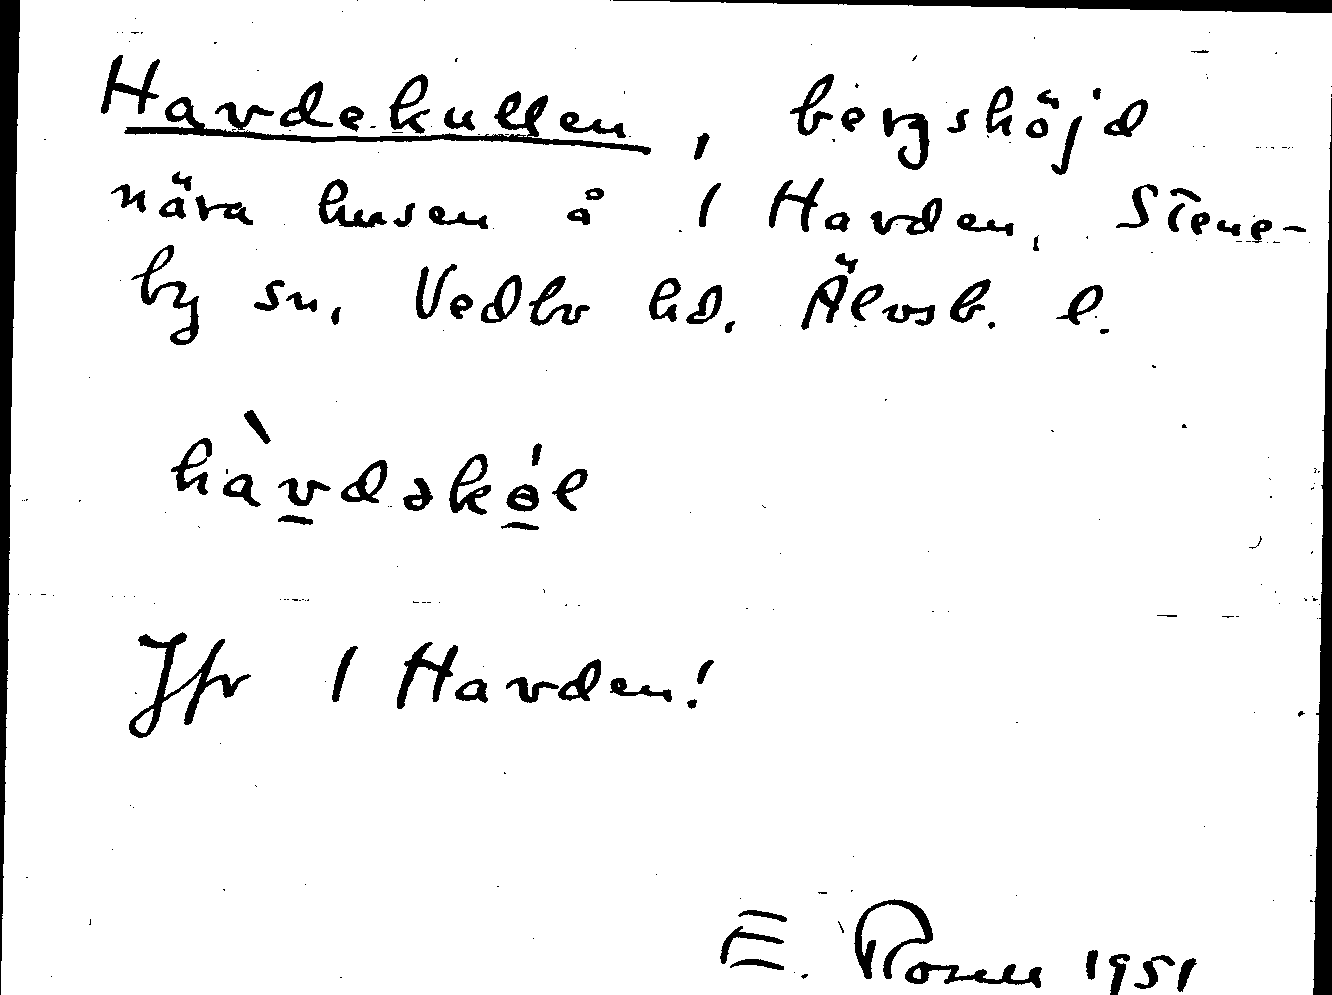 Havdekullen, bergshöjd
nära husen å 1 Havden, Stene-
by sn, Vedbo hd, Älvsb. l.
hàv̲dəkɵ̲́l
Jfr 1 Havden!
E. Rosell 1951